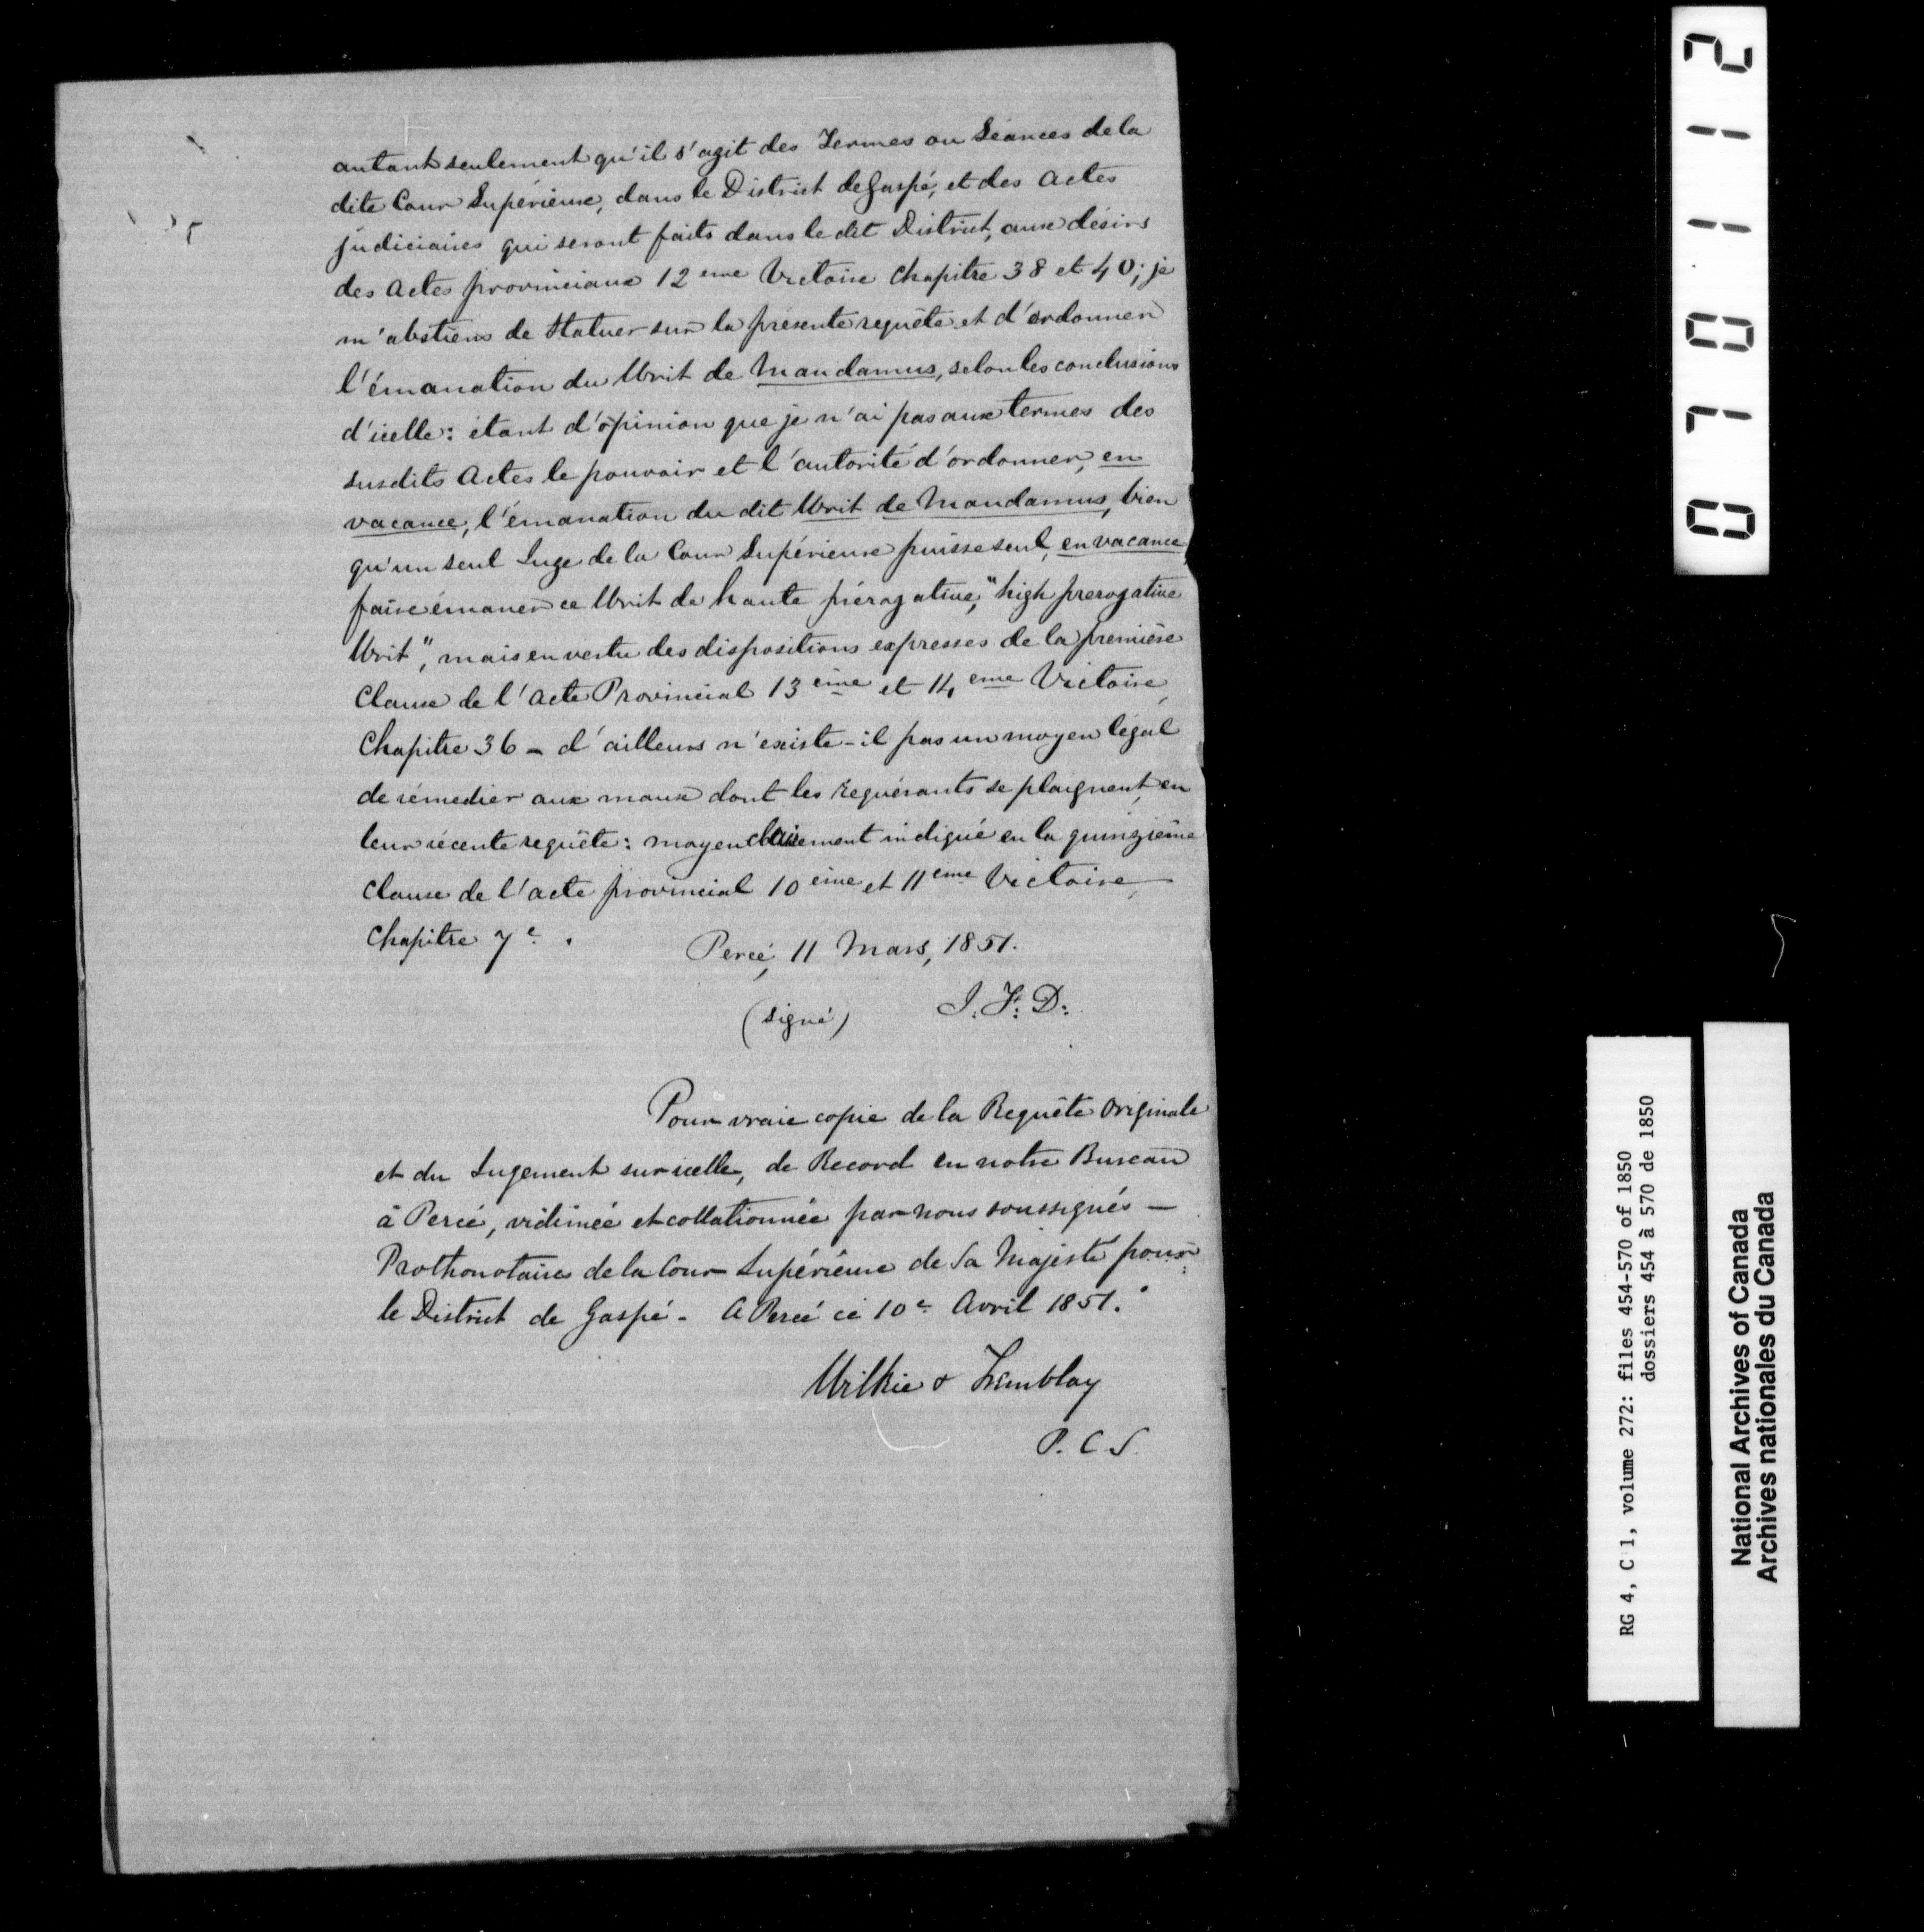 autant seulement qu'il s'agit des Termes ou Séances de la
dite Cour Supérieure, dans le District de Gaspé, et des actes
judiciaires qui seront faits dans le dit District, aux désirs
des Actes provinciaux 12 eme Victoire Chapitre 38 et 40; je
m'abstiens de Statuer sur la présente requête et d'ordonner
l'émanation du Writ de Mandamus, selon les conclusions
d'icelle: étant d'opinion que je n'ai pas aux termes des
susdits Actes le pouvoir et l'autorité d'ordonner, en
vacance, l'émanation du dit Writ de Mandamus, bien
qu'un seul Juge de la Cour Supérieure puisse seul, en vacance
faire émaner ce Writ de haute prérogative, "high prerogative
Writ", mais en vertu des dispositions expresses de la première
Clause de l'acte Provincial 13 eme et 14 eme Victoire,
Chapitre 36 - d'ailleurs n'existe-il pas un moyen légal
de rémedier aux maux dont les requérants se plaignent, en
leur récente requête: moyen clairement indiqué en la quinzième
Clause de l'acte provincial 10 eme et 11 eme Victoire,
Chapitre 7e.
Percé, 11 Mars, 1851.
(signé) J. F: D:
Pour vraie copie de la Requête Originale
et du Jugement sur icelle, de Record en notre Bureau
à Percé, vidimée et collationnée par nous soussignés —
Prothonotaires de la Cour Supérieure de Sa Majesté pour
le District de Gaspé - A Percé ce 10e Avril 1851.
Wilkie & Tremblay
P. C. S.
071112
RG 4, C 1, volume 272: files 454-570 of 1850
dossiers 454 à 570 de 1850
National Archives of Canada
Archives nationales du Canada